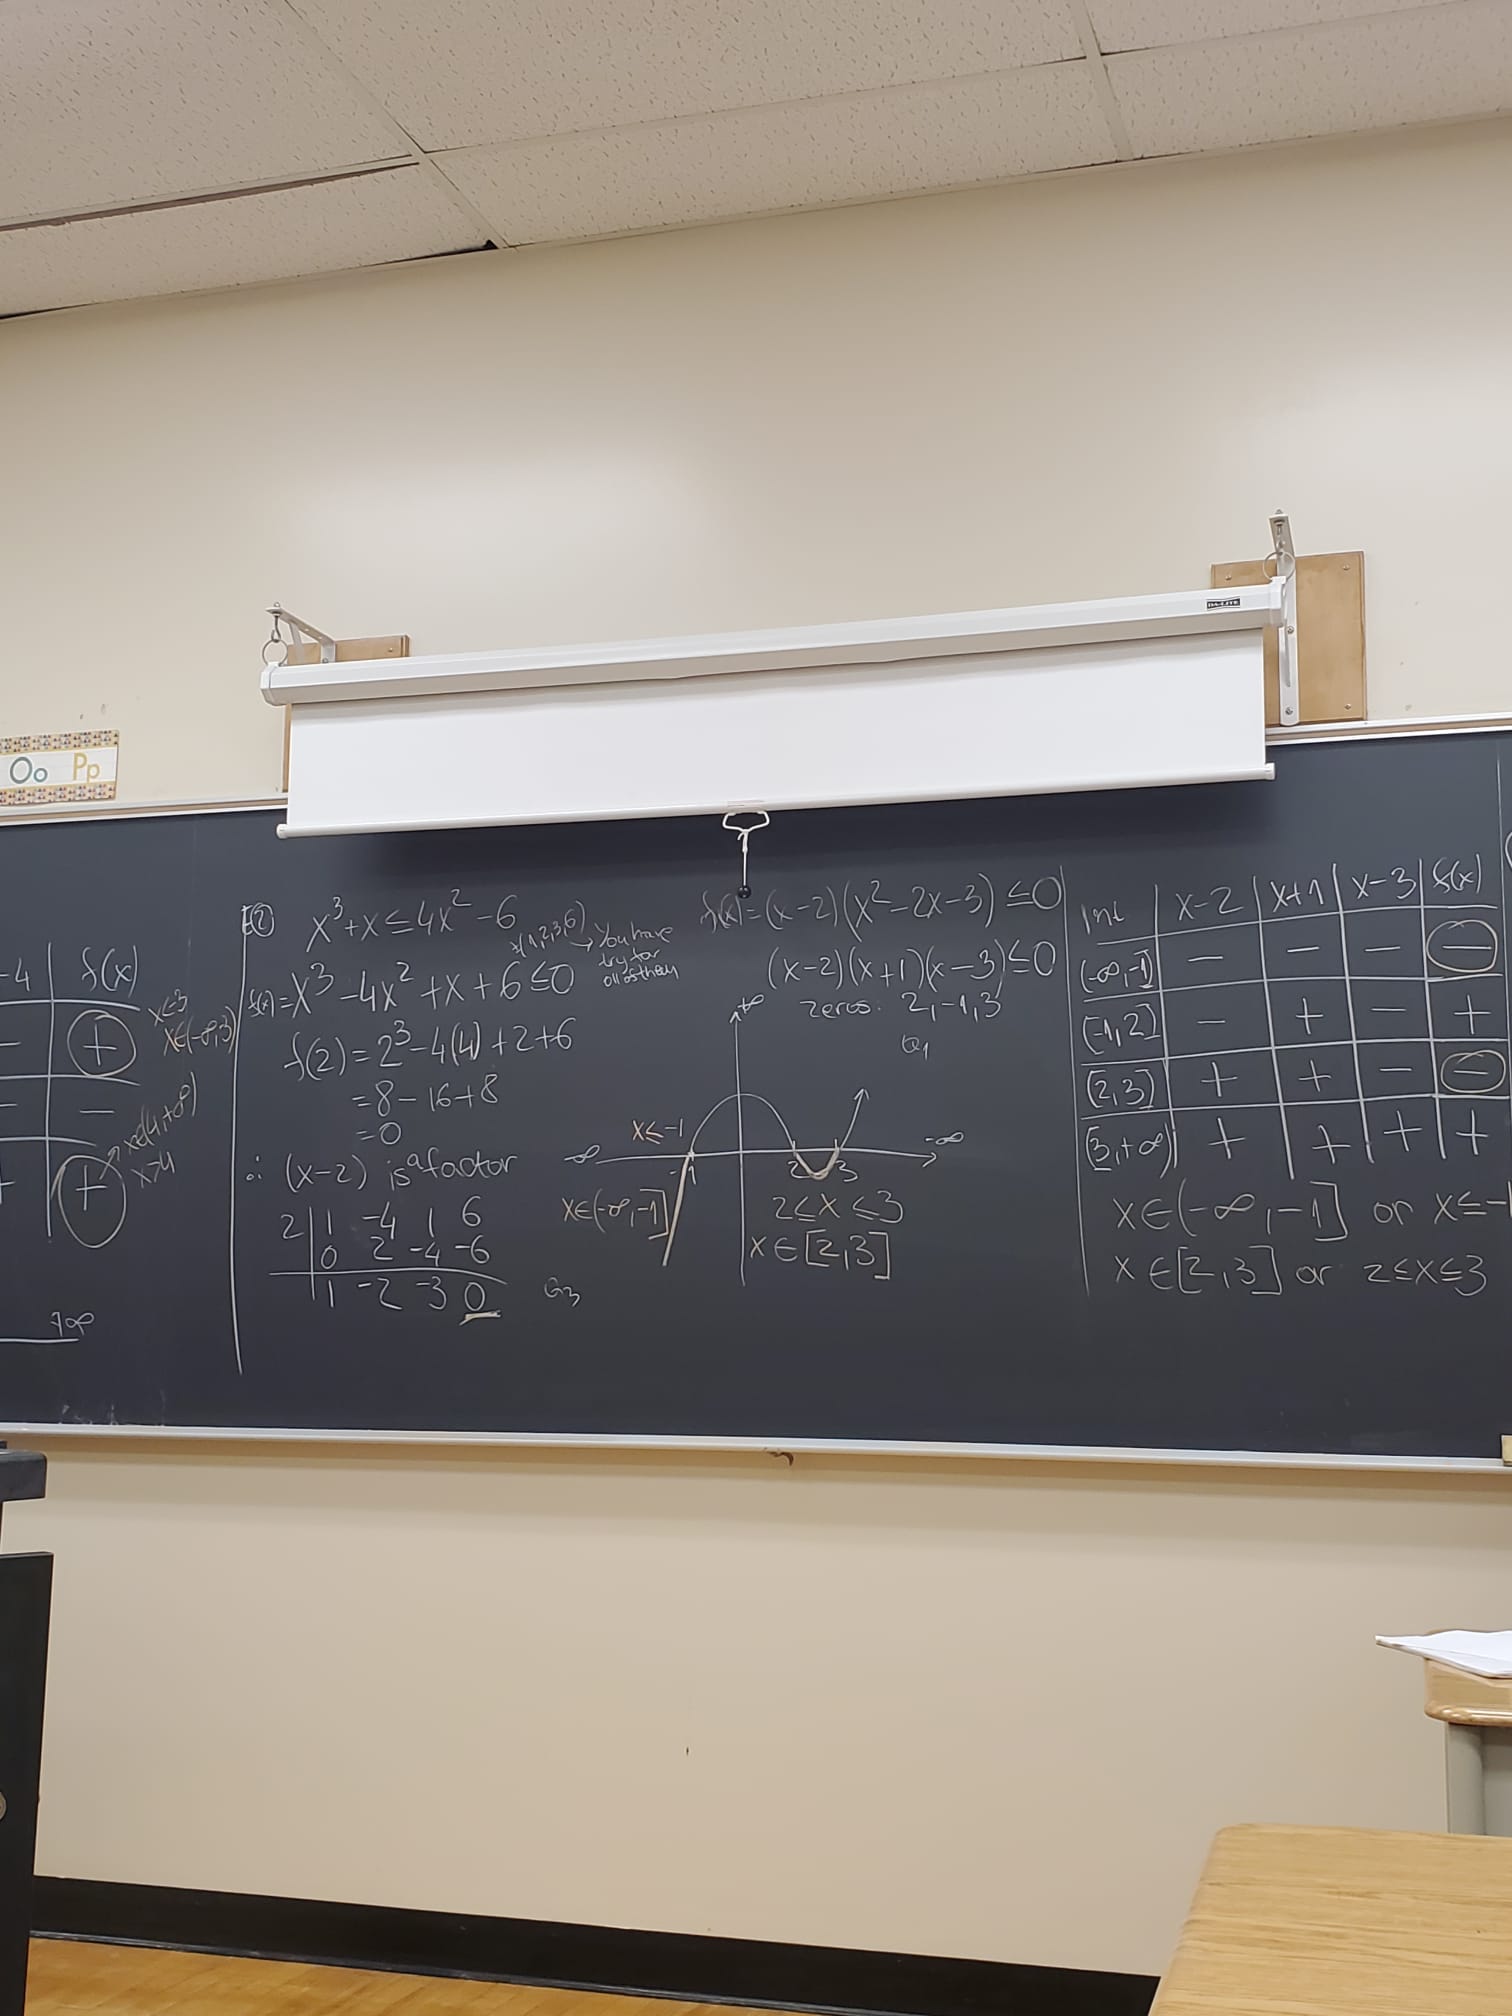 DA-LITE
Oo Pp
-4 f(x)
- + x<3
x∈(-∞,3)
- -
+ x∈(4,+∞)
x>4
+∞
E②
x³+x≤4x²-6
±(1,2,3,6) → You have
try for
all of them
f(x)=x³-4x²+x+6≤0
f(2)=2³-4(4)+2+6
=8-16+8
=0
∴ (x-2) is a factor
2| 1 -4 1 6
0 2 -4 -6
1 -2 -3 0
Q3
f(x)=(x-2)(x²-2x-3)≤0
(x-2)(x+1)(x-3)≤0
zeros: 2,-1,3
Q1
+∞
x≤-1
-∞ -1 2 3 -∞
x∈(-∞,-1]
2≤x≤3
x∈[2,3]
Int x-2 x+1 x-3 f(x)
(-∞,-1] - - - -
[-1,2] - + - +
[2,3] + + - -
[3,+∞) + + + +
x∈(-∞,-1] or x≤-1
x∈[2,3] or 2≤x≤3